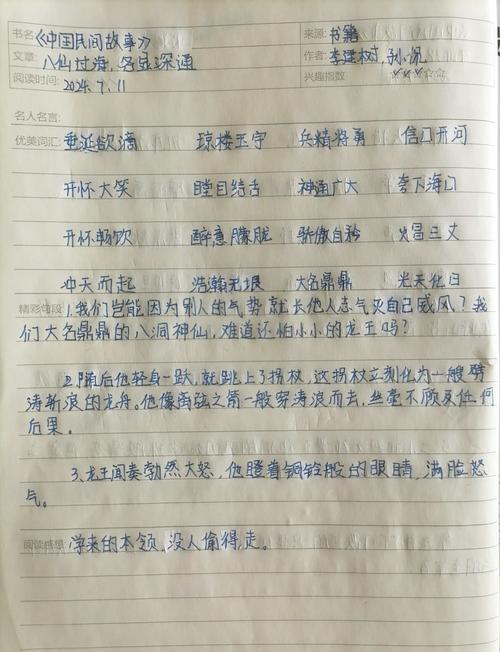 书名:《中国民间故事》 来源: 书籍
文章: 八仙过海,各显深通 作者: 李建树
阅读时间: 2024.7.11 兴趣指数 ☆☆☆☆☆
名人名言:
优美词汇: 垂涎欲滴 琼楼玉宇 兵精将勇 信口开河
开怀大笑 瞠目结舌 神通广大 夸下海口
开怀畅饮 醉意朦胧 骄傲自矜 火冒三丈
冲天而起 浩瀚无垠 大名鼎鼎 光天化日
精彩句段: 1.我们岂能因为别人的气势就长他人志气灭自己威风?我
们大名鼎鼎的八洞神仙,难道还怕小小的龙王吗?
2.随后他轻身一跃,就跳上了拐杖,这拐杖立刻化为一艘劈
涛斩浪的龙舟。他像离弦之箭一般穿涛浪而去,丝毫不顾及任何
后果。
3.龙王闻奏勃然大怒,他瞪着铜铃般的眼睛,满脸怒
气。
阅读感想: 学来的本领,没人偷得走。